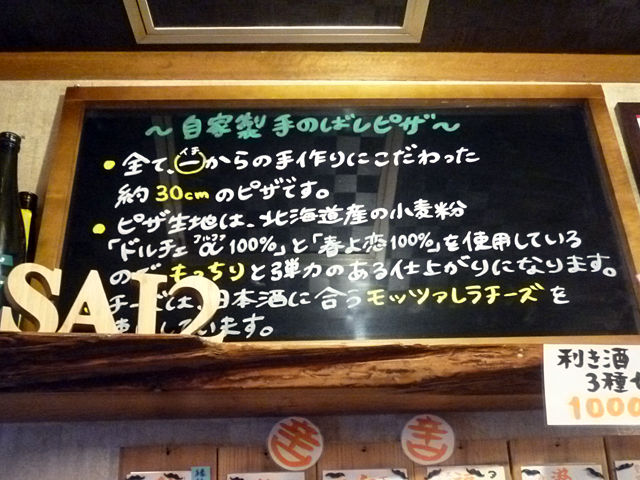 ～自家製 手のばしピザ～
全て、一からの手作りにこだわった
イチ
約30cmのピザです。
ピザ生地は、北海道産の小麦粉
「ドルチェα100%」と「春よ恋100%」を使用している
アルファ
のでもっちりと弾力のある仕上がりになります。
チーズは、日本酒に合うモッツァレラチーズを
しています。
SAI2
利き酒
3種
1000